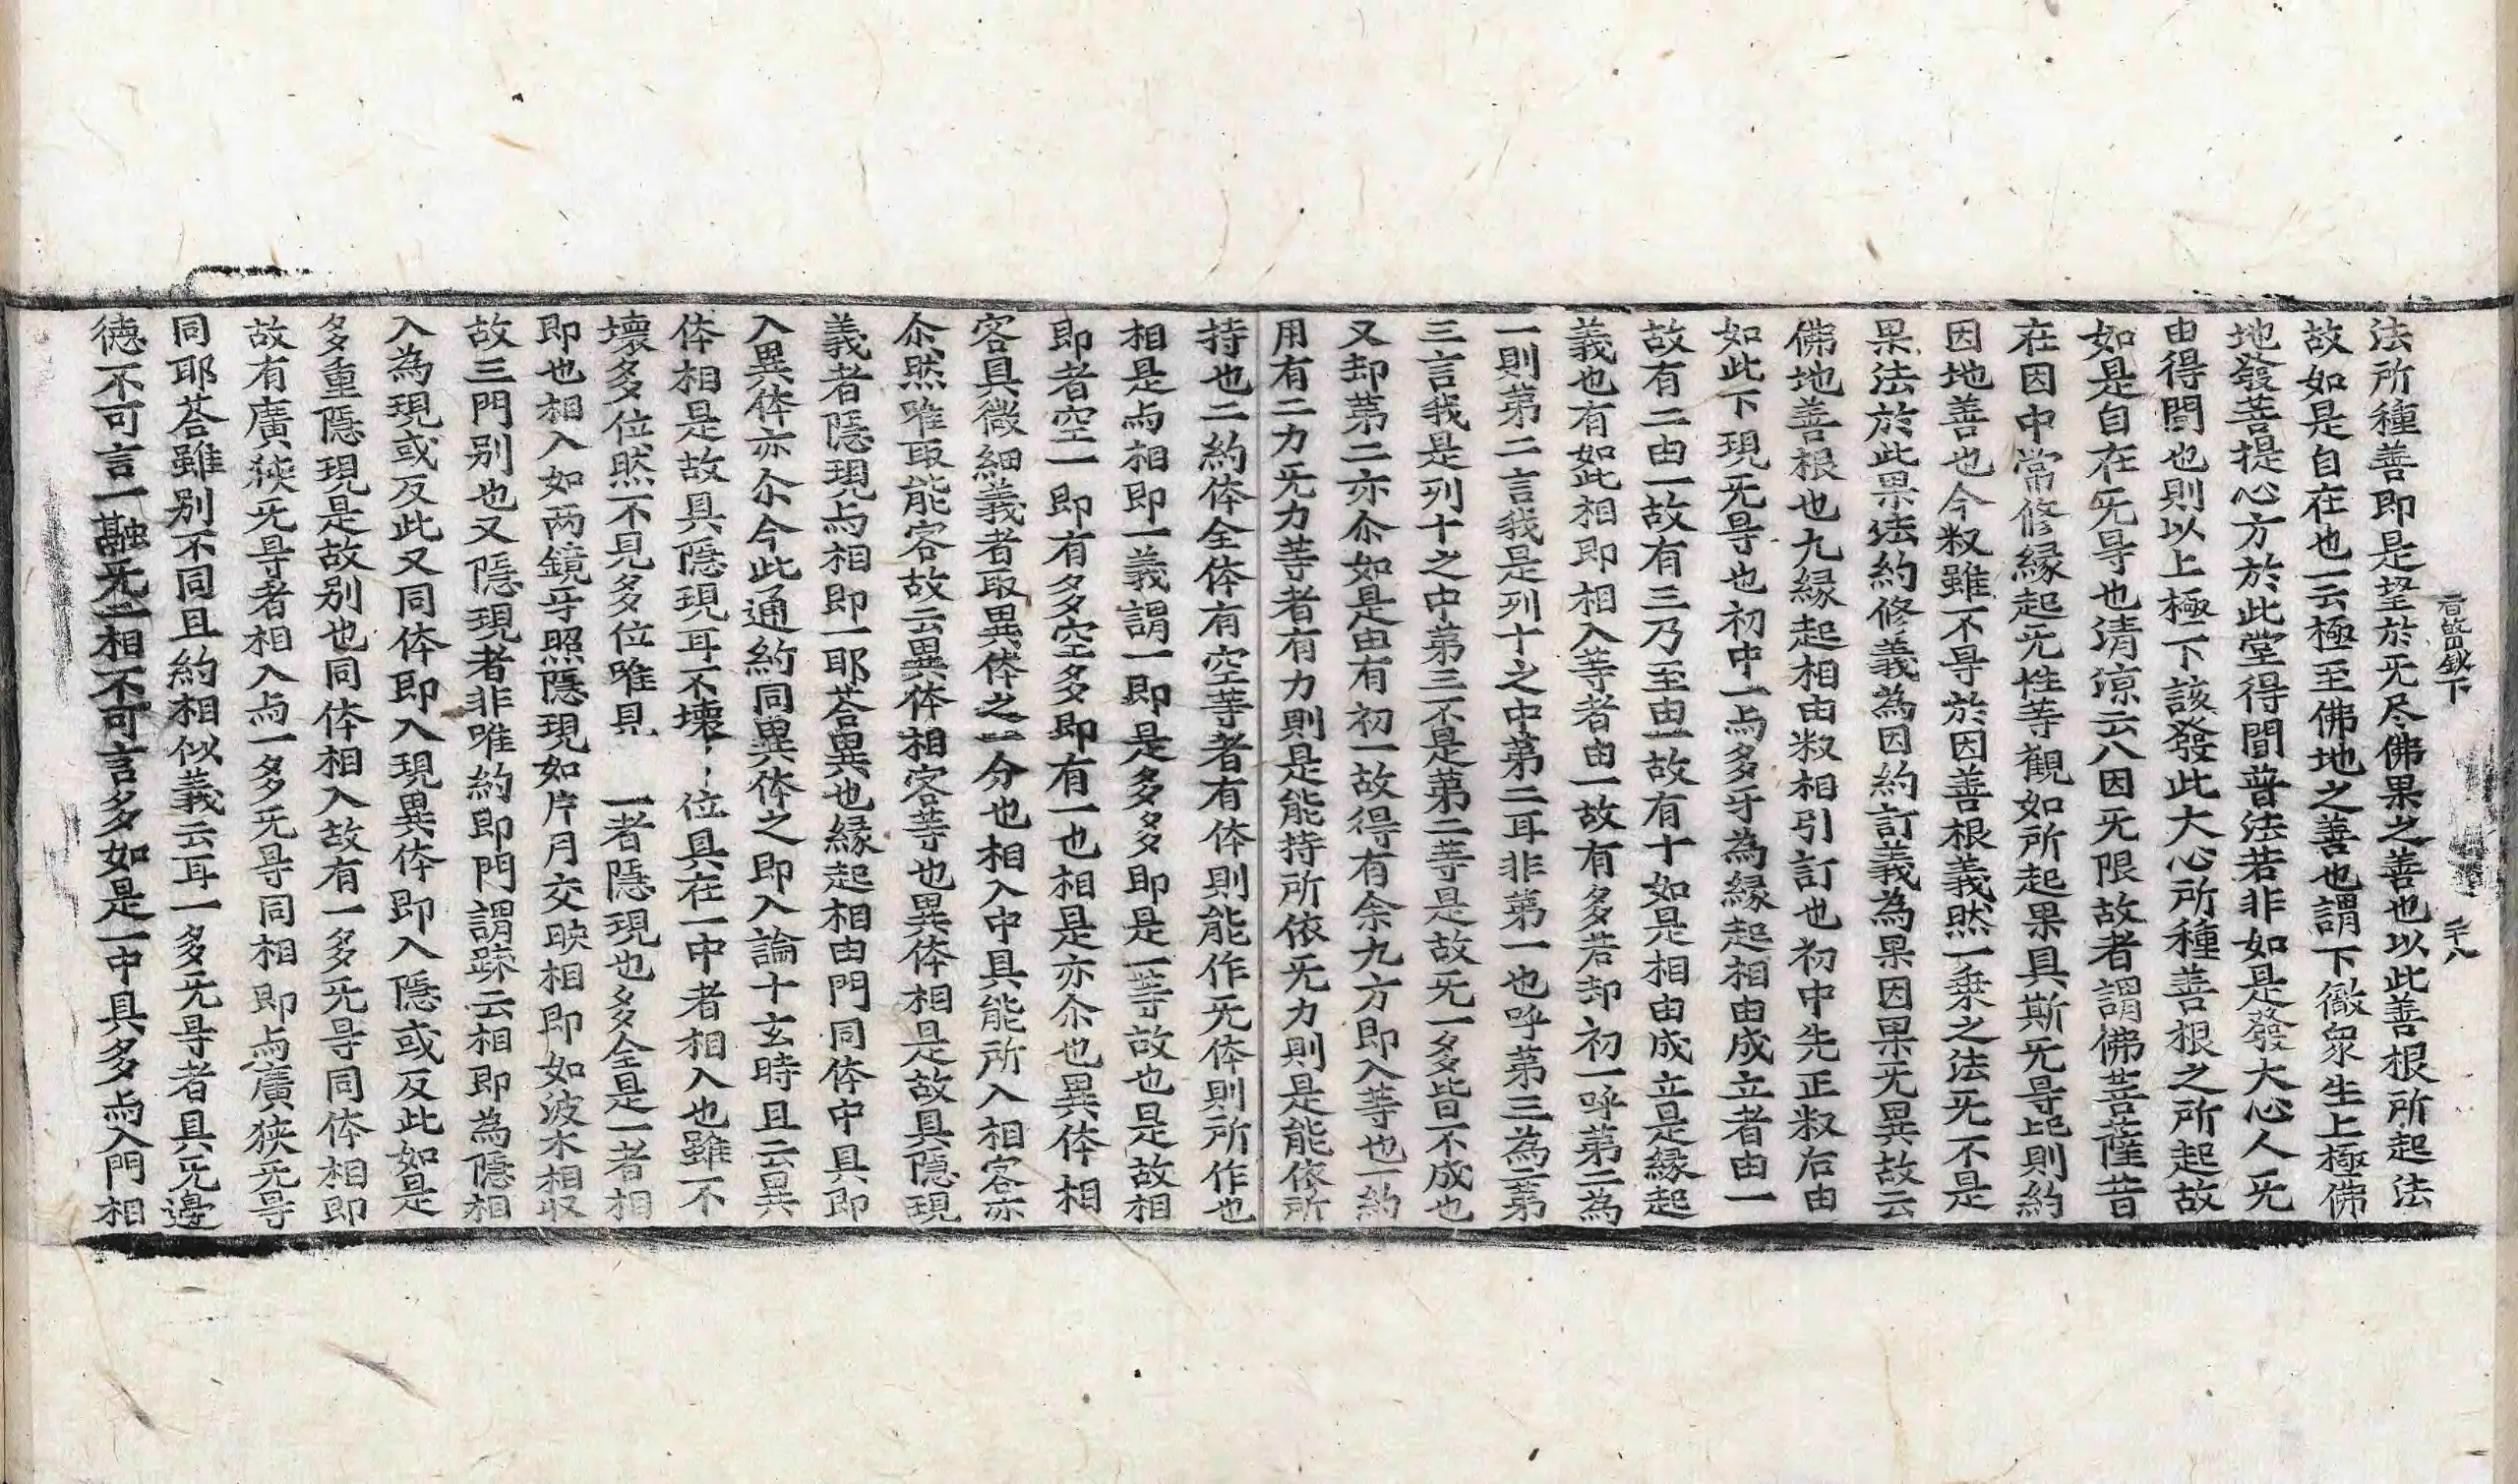 法所種善即是望於旡尽佛果之善也以此善根所起法
故如是自在也一云極至佛地之善也謂下徹衆生上極佛
地發菩提心方於此堂得聞普法若非如是發大心人旡
由得聞也則以上極下該發此大心所種善根之所起故
如是自在旡导也清凉云八因旡限故者謂佛菩薩昔
在因中常修縁起旡性等觀如所起果具斯旡导此則約
因地善也今叙雖不导於因善根義然一乗之法旡不是
果法於此果法約修義為因約訂義為果因果旡異故云
佛地善根也九縁起相由叙相引訂也初中先正叙后由
如此下現旡导也初中一与多牙為縁起相由成立者由一
故有二由一故有三乃至由一故有十如是相由成立是縁起
義也有如此相即相入等者由一故有多若却初一呼第二為
一則第二言我是列十之中第二耳非第一也呼第三為二第
三言我是列十之中第三不是第二等是故旡一多皆不成也
又却第二亦尒如是由有初一故得有余九方即入等也一約
用有二力旡力等者有力則是能持所依旡力則是能依所
持也二約体全体有空等者有体則能作旡体則所作也
相是与相即一義謂一即是多多即是一等故也是故相
即者空一即有多空多即有一也相是亦尒也異体相
容具微細義者取異体之一分也相入中具能所入相容亦
尒然唯取能容故云異体相容等也異体相是故具隱現
義者隱現与相即一耶荅異也縁起相由門同体中具即
入異体亦尒今此通約同異体之即入論十玄時且云異
体相是故具隱現耳不壞〻位具在一中者相入也雖不
壞多位然不見多位唯見 一者隱現也多全是一者相
即也相入如两鏡牙照隱現如片月交映相即如波水相収
故三門别也又隱現者非唯約即門謂踈云相即為隱相
入為現或反此又同体即入現異体即入隱或反此如是
多重隱現是故别也同体相入故有一多旡导同体相即
故有廣狹旡导者相入与一多旡导同相即与廣狹旡导
同耶荅雖别不同且約相似義云耳一多旡导者具旡邊
德不可言一融旡二相不可言多如是一中具多与入門相